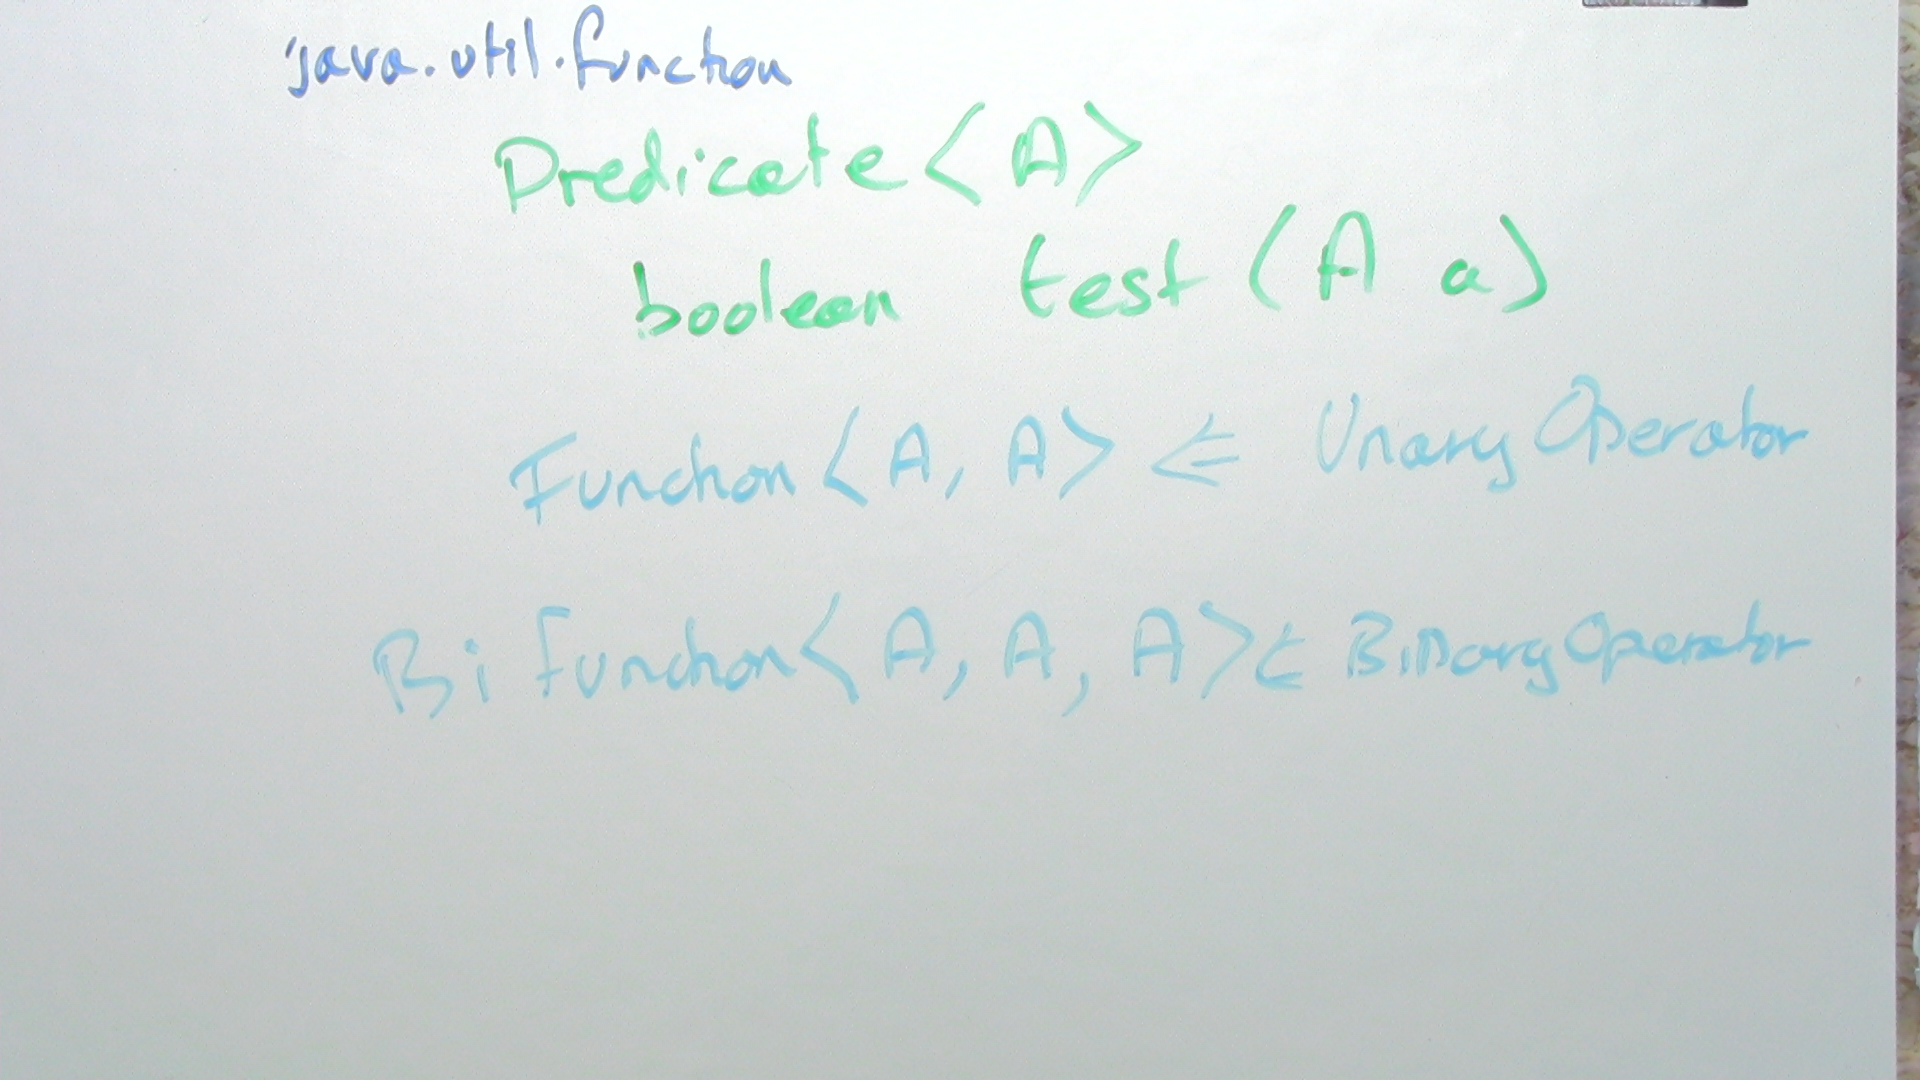 java.util.function
Predicate<A>
boolean test (A a)
Function<A, A> ⇐ UnaryOperator
BiFunction<A, A, A> ⇐ BinaryOperator